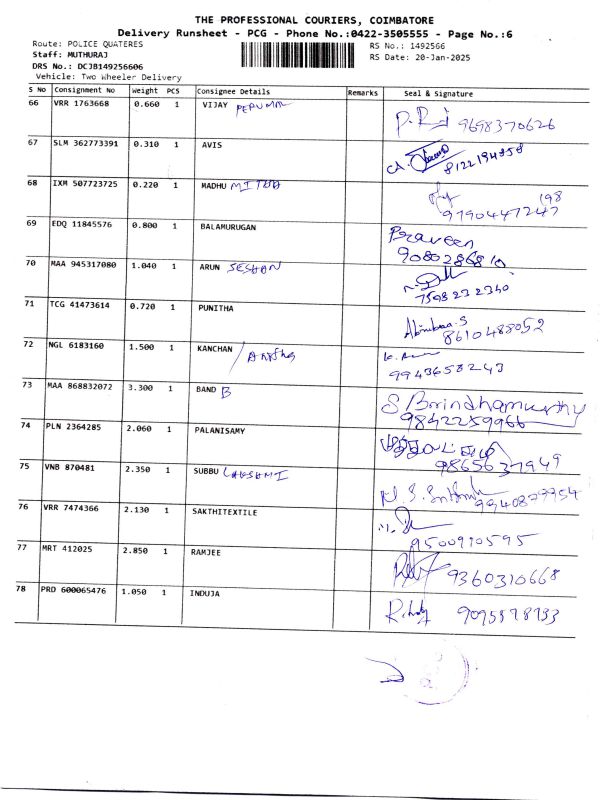 THE PROFESSIONAL COURIERS, COIMBATORE
Delivery Runsheet - PCG - Phone No.:0422-3505555 - Page No.:6
Route: POLICE QUATERES RS No.: 1492566
Staff: MUTHURAJ RS Date: 20-Jan-2025
DRS No.: DCJB149256606
Vehicle: Two Wheeler Delivery
S No Consignment No Weight PCS Consignee Details Remarks Seal & Signature
66 VRR 1763668 0.660 1 VIJAY PERUMAL 9698370626
67 SLM 362773391 0.310 1 AVIS
68 IXM 507723725 0.220 1 MADHU MITHA
69 EDQ 11845576 0.800 1 BALAMURUGAN Praveen
9080286810
70 MAA 945317080 1.040 1 ARUN SESHAN
7598232340
71 TCG 41473614 0.720 1 PUNITHA
8610488052
72 NGL 6183160 1.500 1 KANCHAN
9943658243
73 MAA 868832072 3.300 1 BAND B S Brindhamurthy
9842259966
74 PLN 2364285 2.060 1 PALANISAMY
9865637949
75 VNB 870481 2.350 1 SUBBU LAKSHMI
76 VRR 7474366 2.130 1 SAKTHITEXTILE
9500910595
77 MRT 412025 2.850 1 RAMJEE 9360310668
78 PRD 600065476 1.050 1 INDUJA